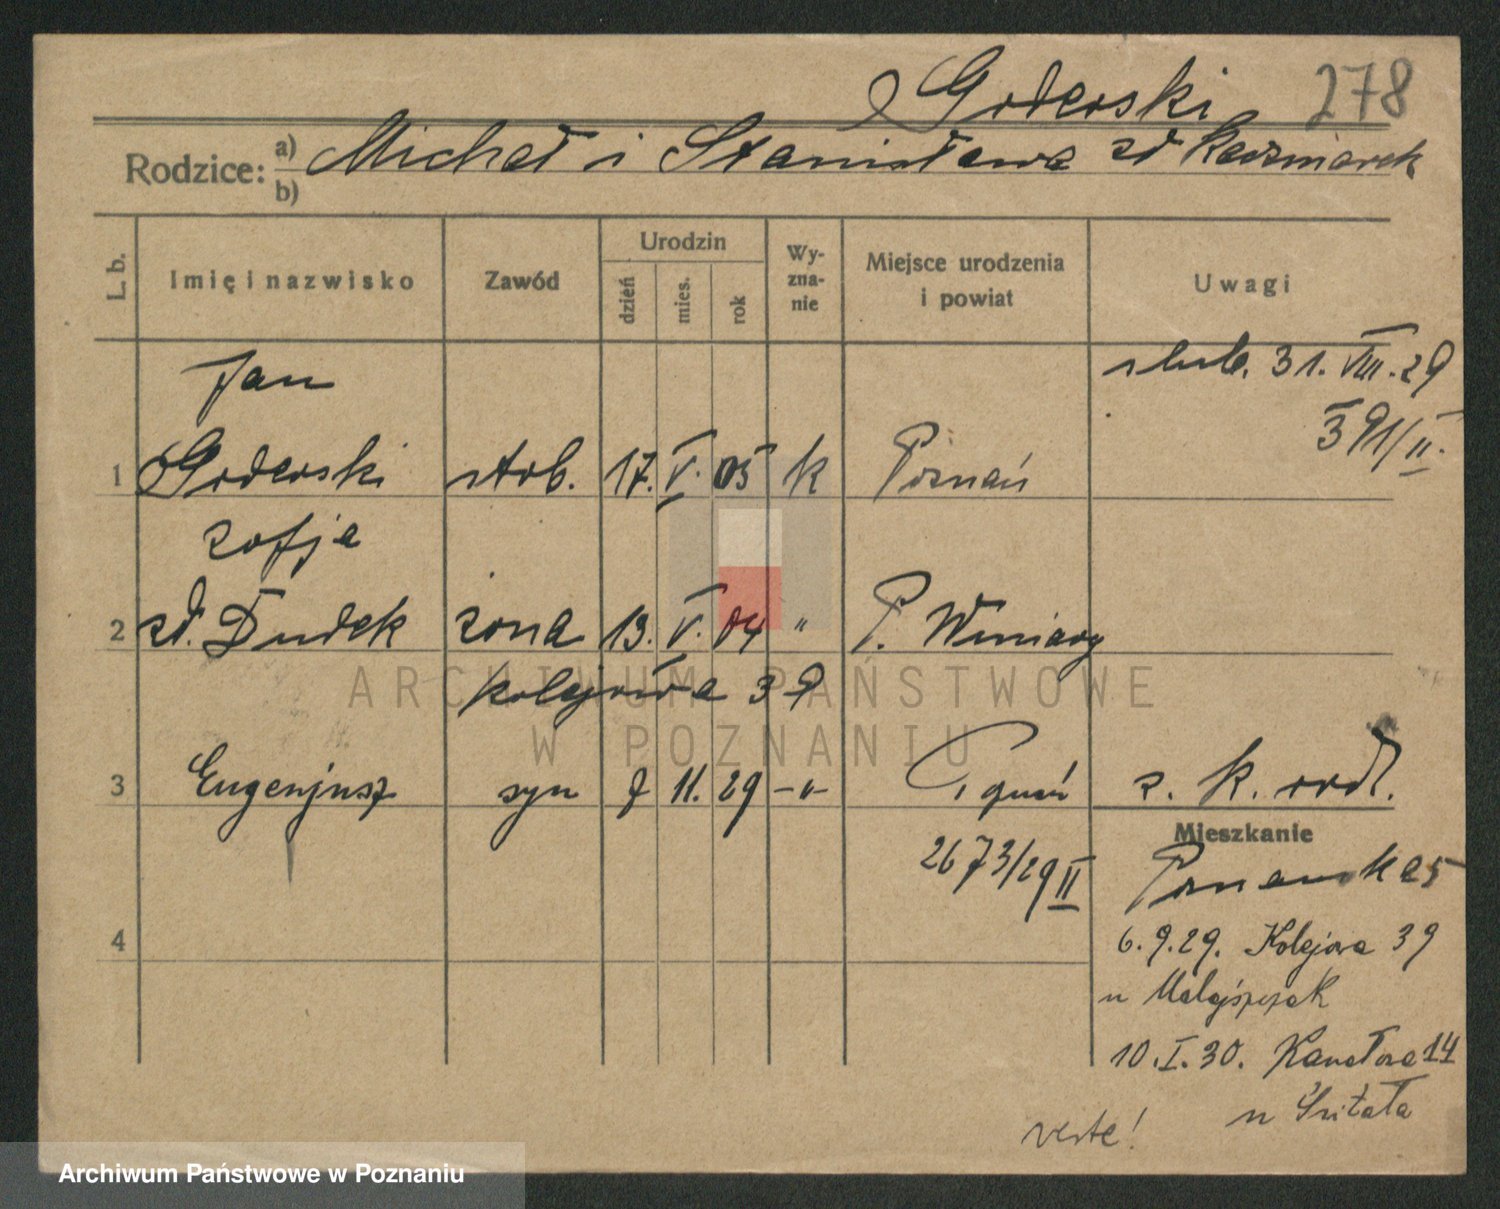 Goderski 278
Rodzice: a) b) Michał i Stanisława zd Kaczmarek
L. b. Imię i nazwisko Zawód Urodzin dzień mies. rok Wyznanie Miejsce urodzenia i powiat Uwagi
Jan
ślub. 31. VIII. 29
391/II.
1 Goderski rob. 17. V. 05 k Poznań
Zofja
2 zd. Dudek żona 13. V. 04 " P. Winiary
Kolejowa 39
3 Eugenjusz syn 11. 29 -"-
2673/29 II
Mieszkanie
4
6.9.29. Kolejowa 39
u
10.I.30. Kanałowa 14
u
verte!
ARCHIWUM PAŃSTWOWE
W POZNANIU
Archiwum Państwowe w Poznaniu